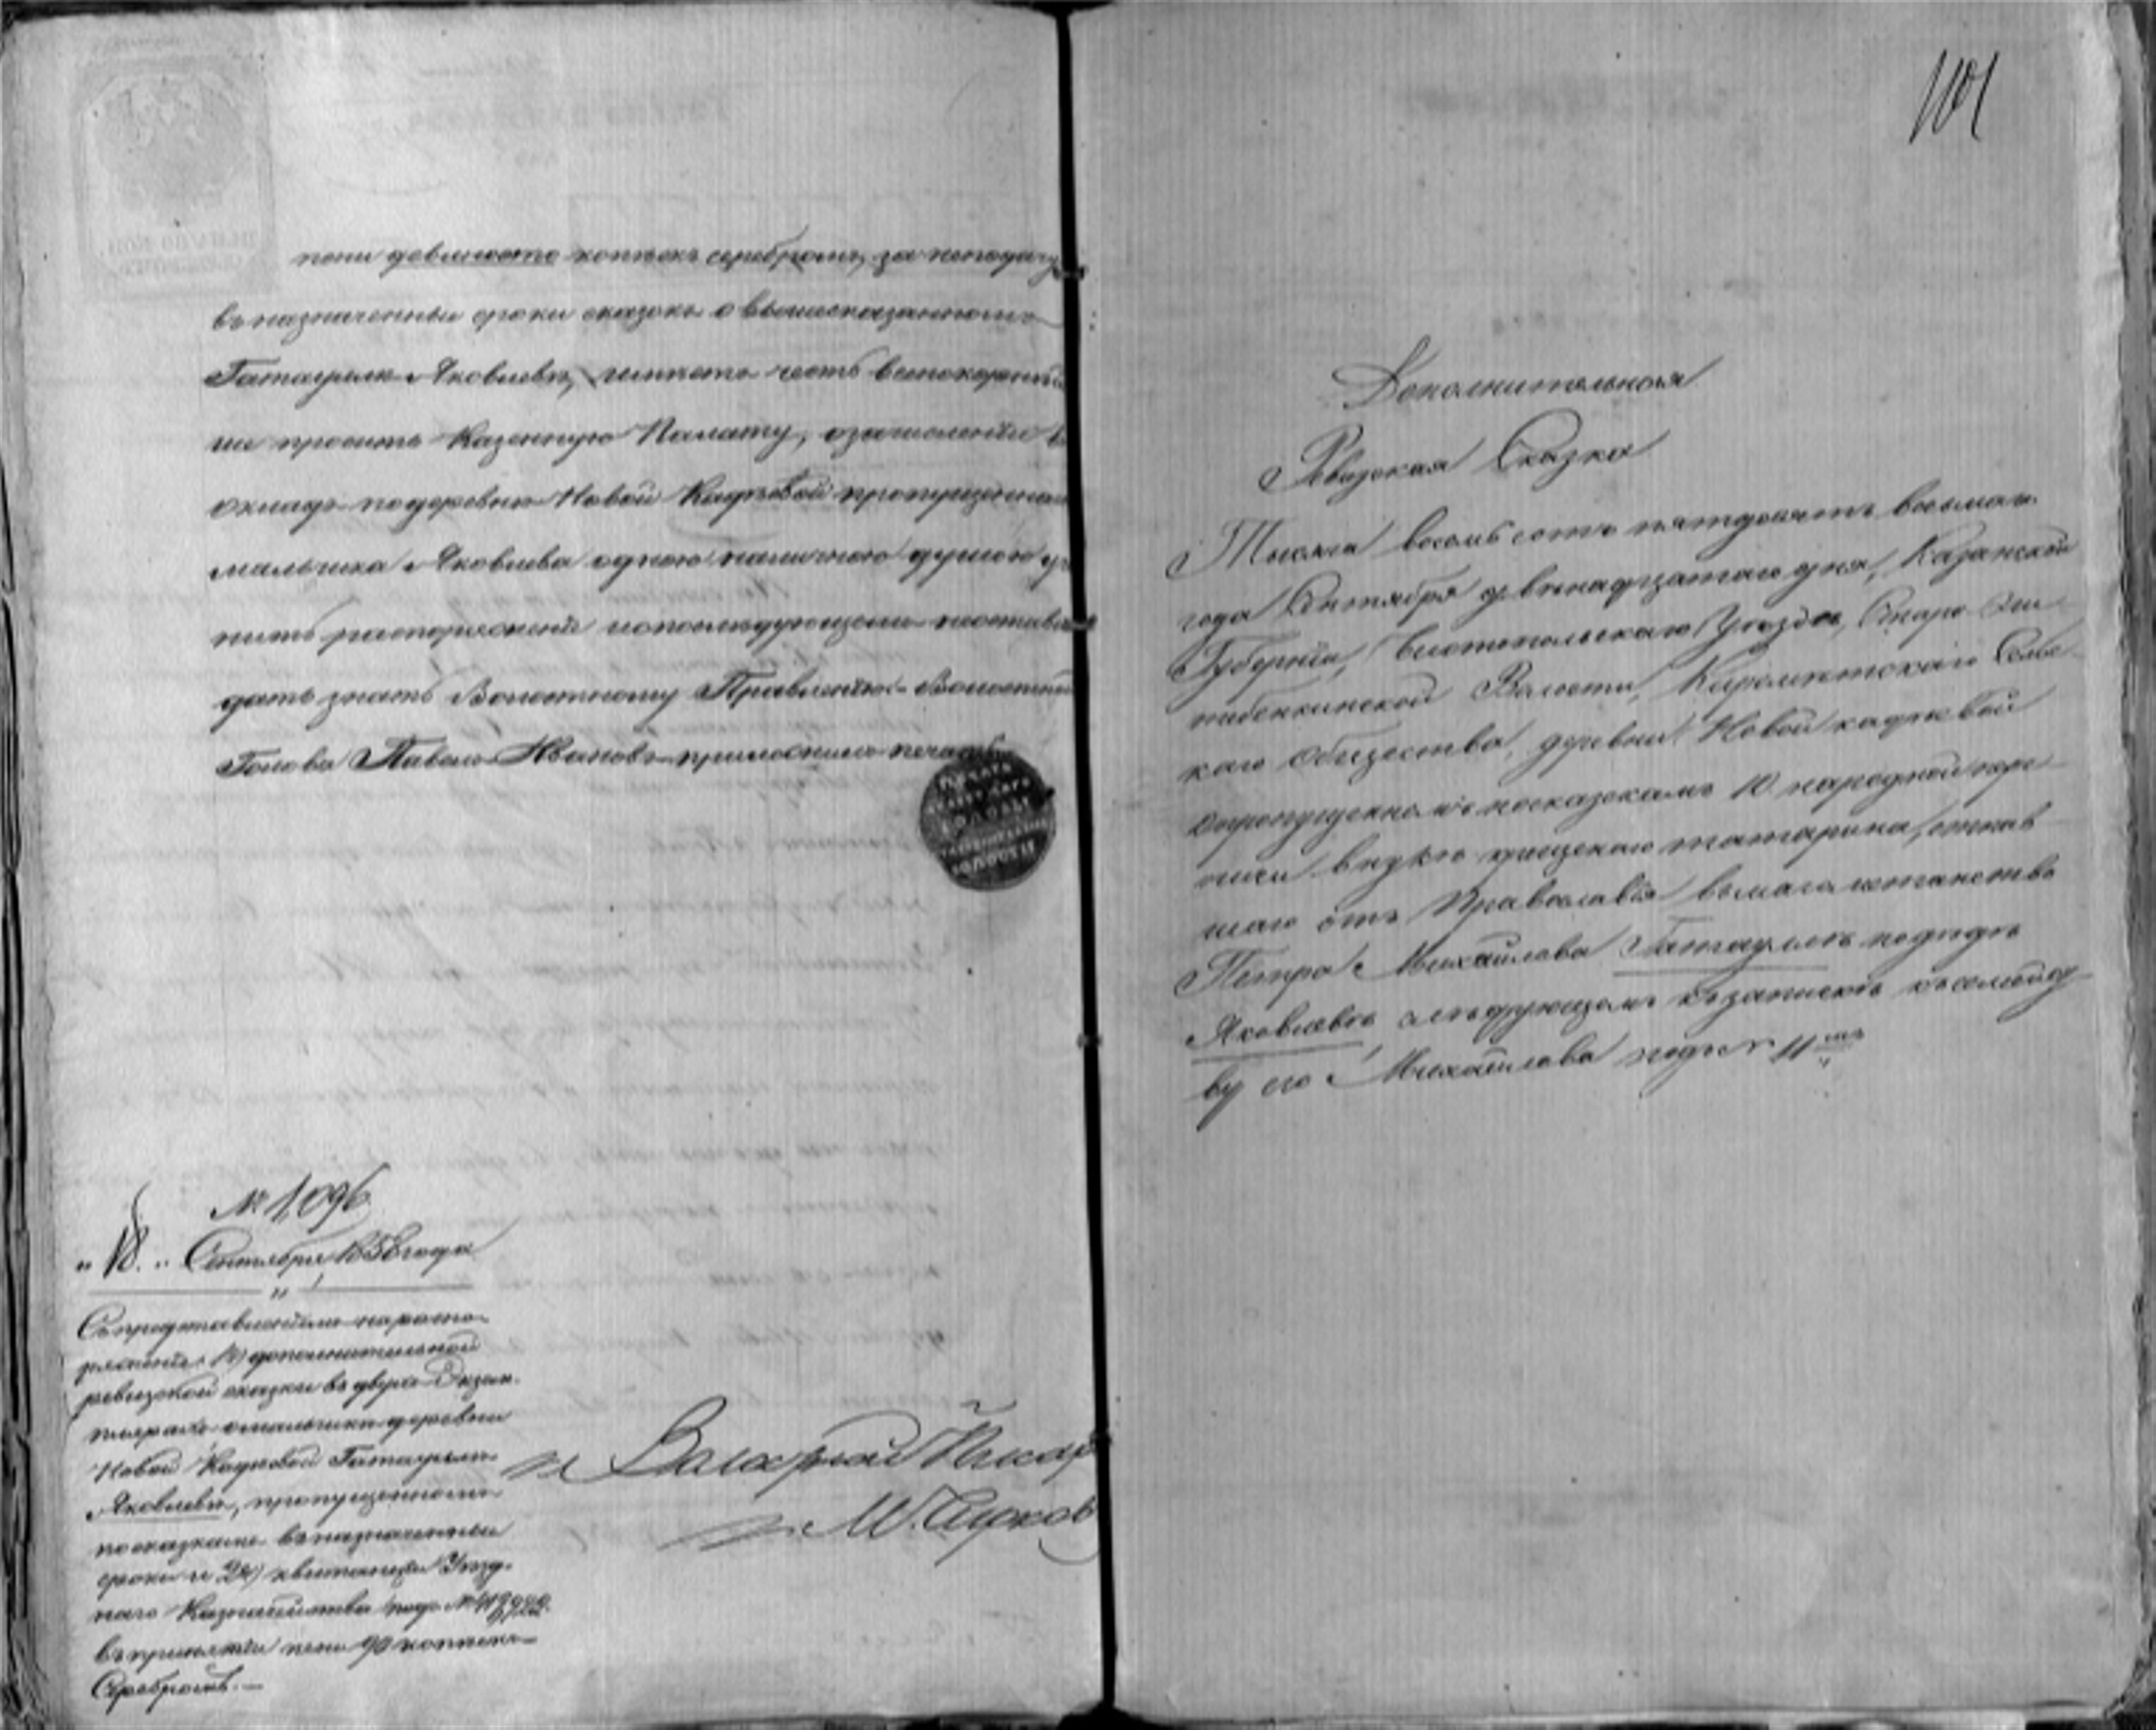 пени девяносто копѣекъ серебромъ, за неподачу
въ назначенные сроки сказокъ о вышесказанномъ
Гатауллѣ Яковлевѣ, имѣетъ честь всепокорнѣй
ше просить Казенную Палату, о зачисленіи въ
окладъ по деревнѣ Новой Кадѣевой пропущеннаго
мальчика Яковлева одною наличною душою
распоряженіе и о послѣдующемъ
дать знать Волостному Правленію. Волостный
Голова Павелъ Ивановъ приложилъ печать
№ 1096
"18." Сентября 1858 года
Съ представленіемъ на распо
ряженіе 1) дополнительной
ревизской сказки въ двухъ Экзем
плярахъ о мальчикѣ деревни
Новой Кадѣевой Гатауллѣ
Яковлевѣ, пропущенномъ
по сказкамъ въ назначенные
сроки и 2) квитанціи Уѣзд
наго Казначейства подъ №
въ принятіи пени 90 копѣекъ
Серебромъ.
Волостной Писарь
101
Дополнительная
Ревизская Сказка
Тысяча восемь сотъ пятьдесятъ восьмаго
года Сентября двѣнадцатаго дня, Казанской
Губерніи, Чистопольскаго Уѣзда, Старо
Волости, Сельс
каго общества, деревни Новой Кадѣевой
о пропущенномъ по сказкамъ 10 народной пере
писи внукѣ крещенаго татарина, отпав
шаго отъ Православія въ магометанство
Петра Михайлова Гатауллѣ
Яковлевѣ, слѣдующемъ къ запискѣ къ семейст
ву его Михайлова подъ № 11мъ